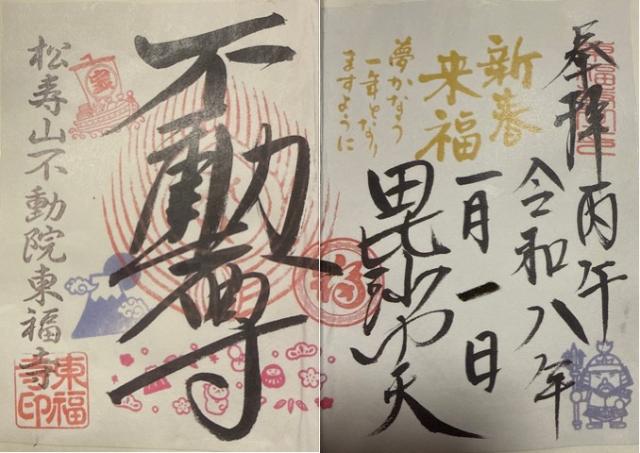 奉拝 丙午
令和八年
一月一日
新春
来福
夢かなう
一年となり
ますように
毘沙門天
福
不動尊
宝
松寿山不動院東福寺
東福
寺印